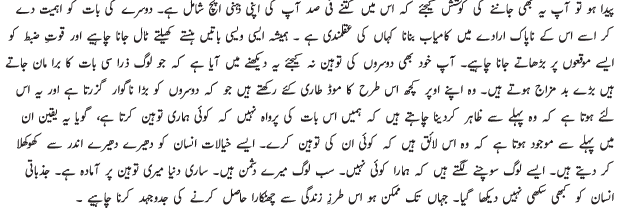 پیدا ہو تو آپ یہ بھی جاننے کی کوشش کیجئے کہ اس میں کتنے فی صد آپ کی اپنی ذہنی ایچ شامل ہے۔ دوسرے کی بات کو اہمیت دے
کر اسے اس کے ناپاک ارادے میں کامیاب بنانا کہاں کی عقلمندی ہے ۔ ہمیشہ ایسی ویسی باتیں ہنستے کھیلتے ٹال جانا چاہیے اور قوتِ ضبط کو
ایسے موقعوں پر بڑھاتے جانا چاہیے۔ آپ خود بھی دوسروں کی توہین نہ کیجئے یہ دیکھنے میں آیا ہے کہ جو لوگ ذرا سی بات کا برا مان جاتے
ہیں بڑے بد مزاج ہوتے ہیں۔ وہ اپنے اوپر کچھ اس طرح کا موڈ طاری کئے رکھتے ہیں جو کہ دوسروں کو بڑا ناگوار گزرتا ہے اور یہ اس
لئے ہوتا ہے کہ وہ پہلے سے ظاہر کردینا چاہتے ہیں کہ ہمیں اس بات کی پرواہ نہیں کہ کوئی ہماری توہین کرتا ہے، گویا یہ یقین ان
میں پہلے سے موجود ہوتا ہے کہ وہ اس لائق ہیں کہ کوئی ان کی توہین کرے۔ ایسے خیالات انسان کو دھیرے دھیرے اندر سے کھوکھلا
کر دیتے ہیں۔ ایسے لوگ سوچنے لگتے ہیں کہ ہمارا کوئی نہیں۔ سب لوگ میرے دشمن ہیں۔ ساری دنیا میری توہین پر آمادہ ہے۔ جذباتی
انسان کو کبھی سکھی نہیں دیکھا گیا۔ جہاں تک ممکن ہو اس طرزِ زندگی سے چھٹکارا حاصل کرنے کی جدوجہد کرنا چاہیے ۔